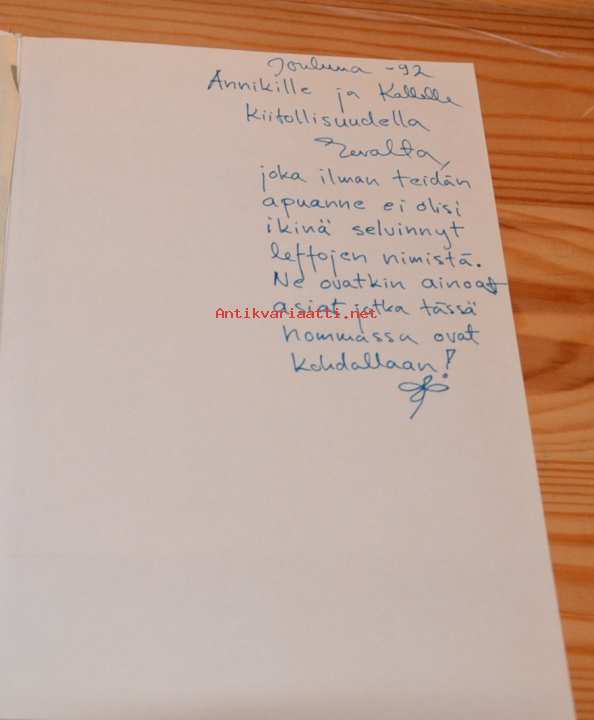 Jouluna -92
Annikille ja Kallelle
kiitollisuudella
joka ilman teidän
apuanne ei olisi
ikinä selvinnyt
leffojen nimistä.
Ne ovatkin ainoat
asiat jotka tässä
Antikvariaatti.net
hommassa ovat
kohdallaan!